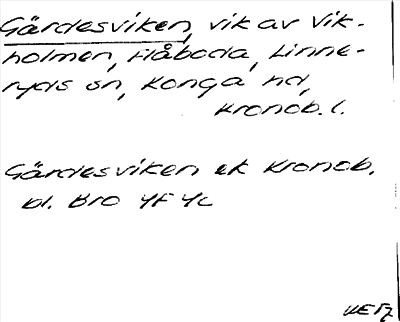 Gärdesviken, vik av Vik-
holmen, Håboda, Linne-
ryds sn, Konga hd,
Kronob. l.
Gärdesviken ek Kronob.
bl. Bro 4F 4c